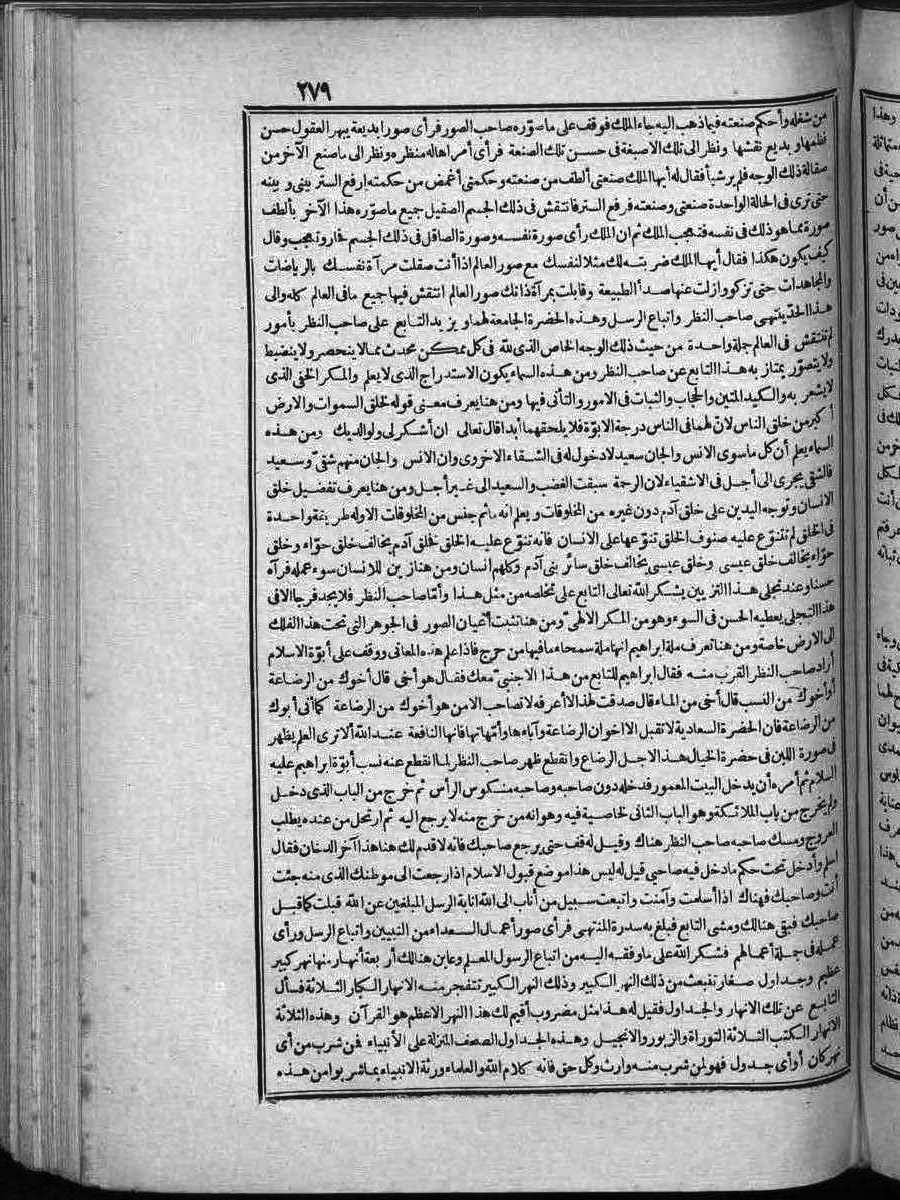 ٢٧٩
من شغله وأحكم صنعته فيما ذهب اليه جاء الملك فوقف على ما صوّره صاحب الصور فرأى صورا بديعة يبهر العقول حسن
نظمها وبديع نقشها ونظر الى تلك الاصبغة فى حسن تلك الصنعة فرأى أمرا هاله منظره ونظر الى ما صنع الآخر من
صقالة ذلك الوجه فلم ير شيأ فقال له أيها الملك صنعتى ألطف من صنعته وحكمتى أغمض من حكمته ارفع الستر بينى وبينه
حتى ترى فى الحالة الواحدة صنعتى وصنعته فرفع الستر فانتقش فى ذلك الجسم الصقيل جميع ما صوّره هذا الآخر بألطف
صورة مما هو ذلك فى نفسه فتعجب الملك ثم ان الملك رأى صورة نفسه وصورة الصاقل فى ذلك الجسم فحار وتعجب وقال
كيف يكون هكذا فقال أيها الملك ضربته لك مثلا لنفسك مع صور العالم اذا أنت صقلت مرآة نفسك بالرياضات
والمجاهدات حتى تزكو وأزلت عنها صدأ الطبيعة وقابلت بمرآة ذاتك صور العالم انتقش فيها جميع ما فى العالم كله والى
هذا الحدّ ينتهى صاحب النظر واتباع الرسل وهذه الحضرة الجامعة لهما ويزيد التابع على صاحب النظر بأمور
لم تنتقش فى العالم جملة واحدة من حيث ذلك الوجه الخاص الذى لله فى كل ممكن محدث مما لا ينحصر ولا ينضبط
ولا يتصوّر يمتاز به هذا التابع عن صاحب النظر ومن هذه السماء يكون الاستدراج الذى لا يعلم والمكر الخفى الذى
لا يشعر به والكيد المتين والحجاب والثبات فى الامور والتأنى فيها ومن هنا يعرف معنى قوله لخلق السموات والارض
أكبر من خلق الناس لانّ لهما فى الناس درجة الابوّة فلا يلحقهما أبدا قال تعالى ان أشكر لى ولوالديك ومن هذه
السماء يعلم أن كل ما سوى الانس والجان سعيد لا دخول له فى الشقاء الاخروى وان الانس والجان منهم شقىّ وسعيد
فالشقى يجرى الى أجل فى الاشقياء لان الرحمة سبقت الغضب والسعيد الى غير أجل ومن هنا يعرف تفضيل خلق
الانسان وتوجه اليدين على خلق آدم دون غيره من المخلوقات ويعلم انه ما ثم جنس من المخلوقات الا وله طريقة واحدة
فى الخلق لم تتنوّع عليه صنوف الخلق تنوّعها على الانسان فانه تنوّع عليه الخلق فخلق آدم يخالف خلق حوّاء وخلق
حوّاء يخالف خلق عيسى وخلق عيسى يخالف خلق سائر بنى آدم وكلهم انسان ومن هنا زين للانسان سوء عمله فرآه
حسنا وعند تجلى هذا التزيين يشكر الله تعالى التابع على تخلصه من مثل هذا وأمّا صاحب النظر فلا يجد فرجا الا فى
هذا التجلى يعطيه الحسن فى السوء وهو من المكر الالهىّ ومن هنا تثبت أعيان الصور فى الجوهر التى تحت هذا الفلك
الى الارض خاصة ومن هنا تعرف ملة ابراهيم انها ملة سمحاء ما فيها من حرج فاذا علم هذه المعانى ووقف على أبوّة الاسلام
أراد صاحب النظر القرب منه فقال ابراهيم للتابع من هذا الاجنبىّ معك فقال هو أخى قال أخوك من الرضاعة
أو أخوك من النسب قال أخى من الماء قال صدقت لهذا لا أعرفه لا تصاحب الا من هو أخوك من الرضاعة كما أنى أبوك
من الرضاعة فان الحضرة السعادية لا تقبل الا اخوان الرضاعة وآباءها وأمّهاتها فانها النافعة عند الله ألا ترى العلم يظهر
فى صورة اللبن فى حضرة الخيال هذا لاجل الرضاع وانقطع ظهر صاحب النظر لما انقطع عنه نسب أبوّة ابراهيم عليه
السلام ثم أمره أن يدخل البيت المعمور فدخله دون صاحبه وصاحبه منكوس الرأس ثم خرج من الباب الذى دخل
ولم يخرج من باب الملائكة وهو الباب الثانى لخاصية فيه وهو انه من خرج منه لا يرجع اليه ثم ارتحل من عنده يطلب
العروج ومسك صاحبه صاحب النظر هناك وقيل له قف حتى يرجع صاحبك فانه لا قدم لك هنا هذا آخر الدخان فقال
أسلم وأدخل تحت حكم ما دخل فيه صاحبى قيل له ليس هذا موضع قبول الاسلام اذا رجعت الى موطنك الذى منه جئت
أنت وصاحبك فهناك اذا أسلمت وآمنت واتبعت سبيل من أناب الى الله انابة الرسل المبلغين عن الله قبلت كما قبل
صاحبك فبقى هنالك ومشى التابع فبلغ به سدرة المنتهى فرأى صور أعمال السعداء من النبيين واتباع الرسل ورأى
عمله فى جملة أعمالهم فشكر الله على ما وفقه اليه من اتباع الرسول المعلم وعاين هنالك أربعة أنهار منها نهر كبير
عظيم وجداول صغار تنبعث من ذلك النهر الكبير وذلك النهر الكبير تتفجر منه الانهار الكبار الثلاثة فسأل
التابع عن تلك الانهار والجداول فقيل له هذا مثل مضروب أقيم لك هذا النهر الاعظم هو القرآن وهذه الثلاثة
الانهار الكتب الثلاثة التوراة والزبور والانجيل وهذه الجداول الصحف المنزلة على الأنبياء فمن شرب من أى
نهر كان أو أى جدول فهو لمن شرب منه وارث وكل حق فانه كلام الله والعلماء ورثة الانبياء بما شربوا من هذه